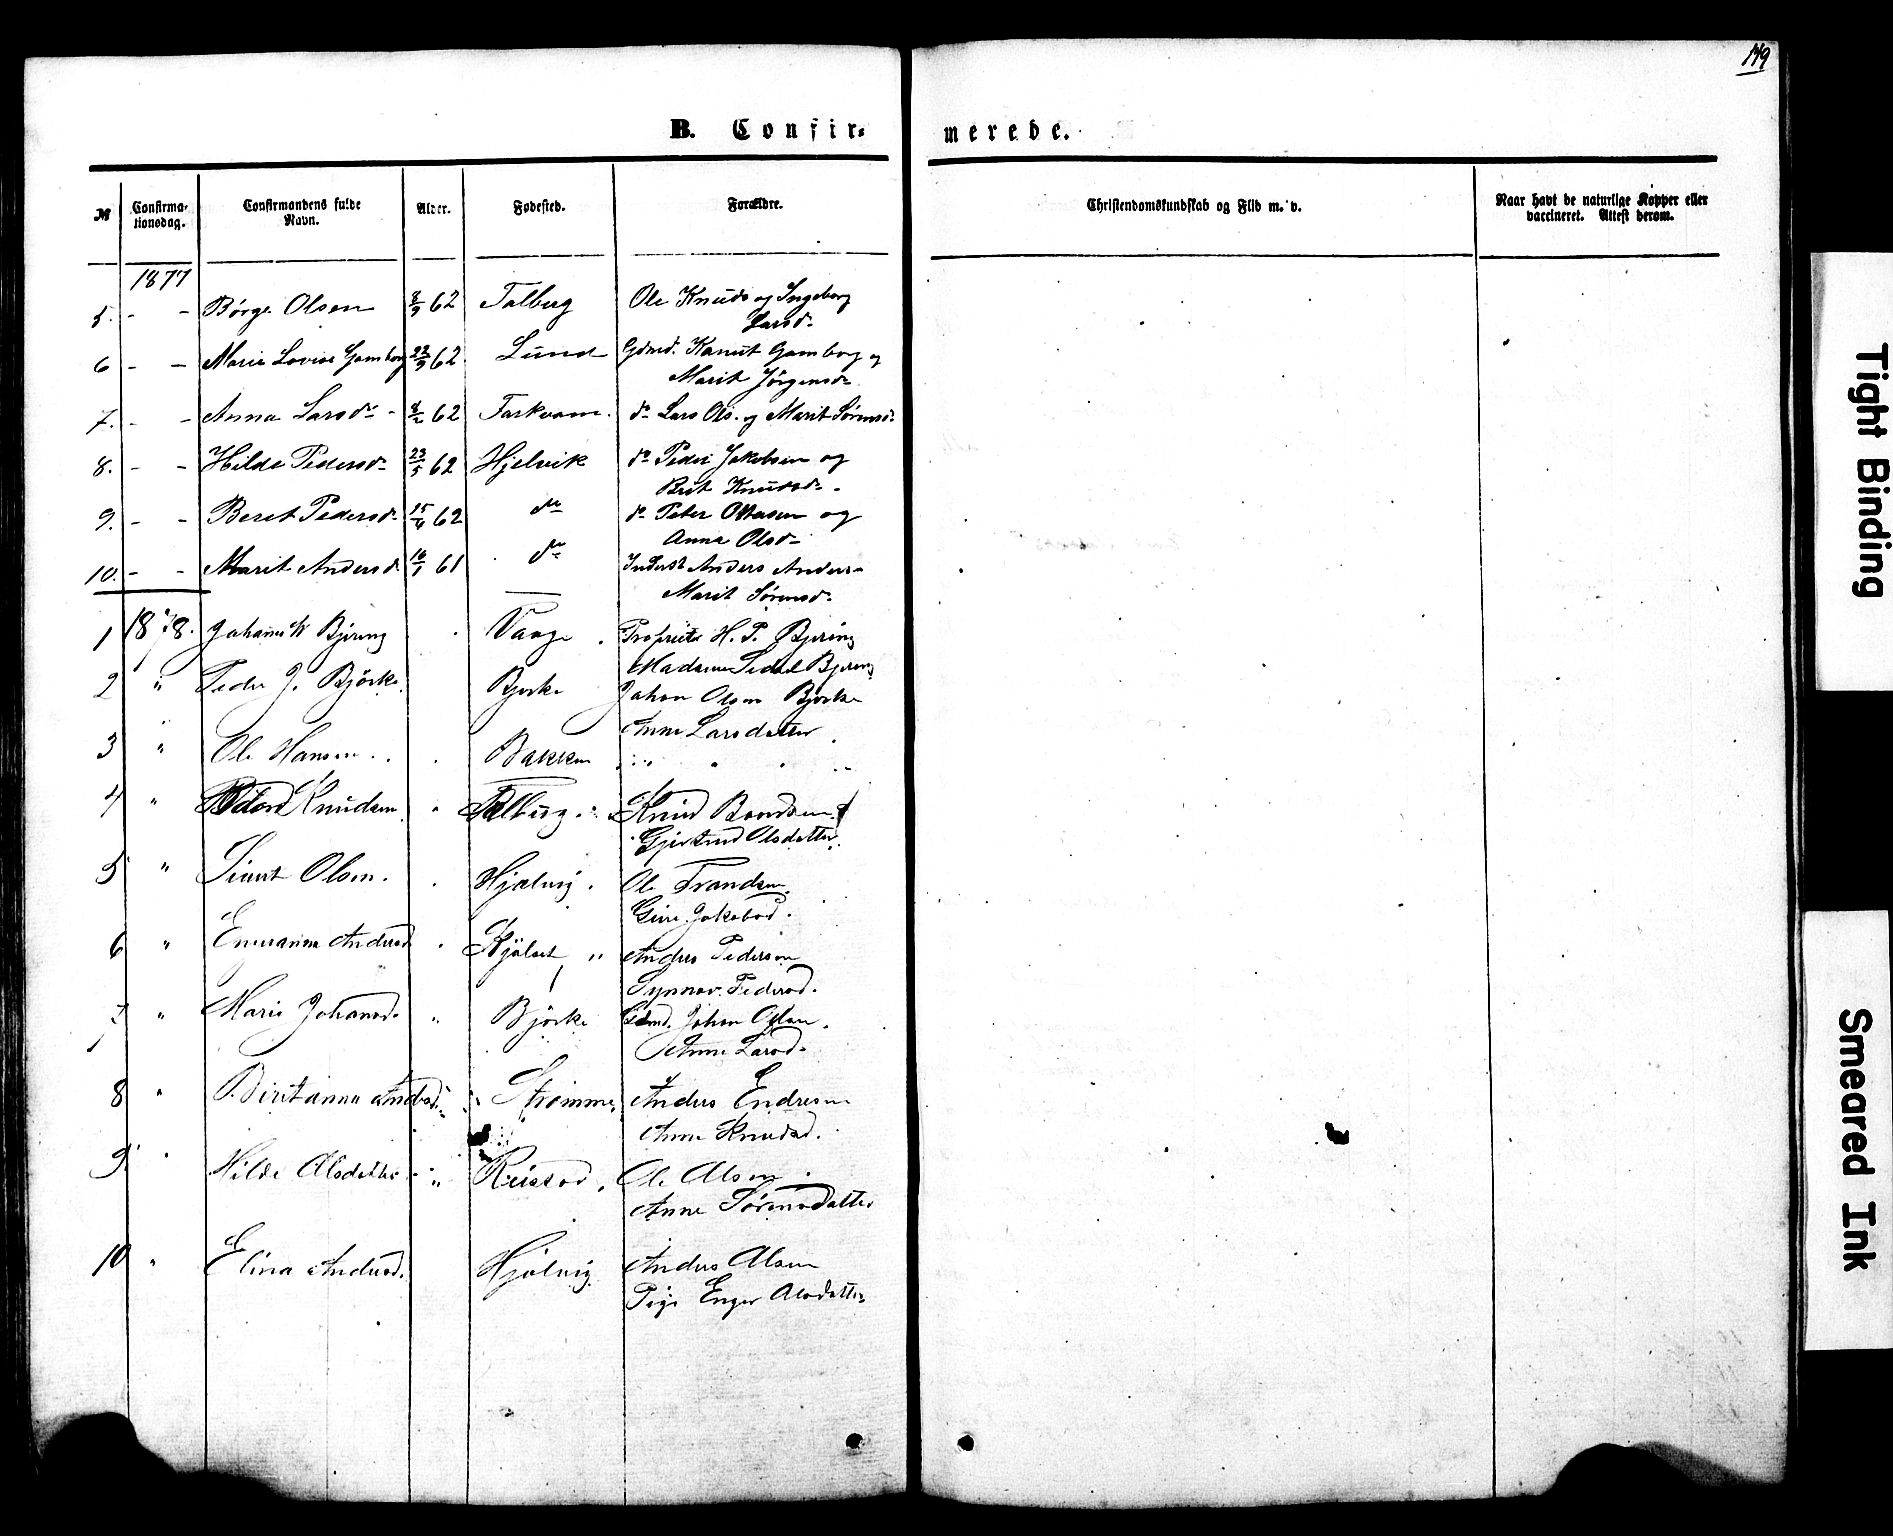 149
B. Confir-
merede.
№ Confirma-tionsdag. Confirmandens fulde Navn. Alder. Fødested. Forældre. Christendomskundskab og Flid m. v. Naar havt de naturlige Kopper eller vaccineret. Attest derom.
1877
5. - - Børge Olsen 62 Talberg Ole Knuds og Ingeborg
Larsd.
6 - - Marie Lovise Gamborg 62 Lund Gdmd. Kanut Gamborg og
Marit Jørgensd.
7. - - Anna Larsd. - 62 Torkvam. do Lars Ols. og Marit Sørensd.
8. - - Hilde Pedersd. 23/5 62 Hjelvik do Peder Jakobsen og
Brit Knudsd.
9. - - Beret Pedersd. 15/4 62 do do Peter Ottesen og
Anna Olsd.
10. - - Marit Andersd. 16/1 61 do Inderst Anders Anders.
Marit Sørensd.
1 1878. Bjering Vaage Proprietr H. P. Bjering
Madame Bjering
2 " Peder J. Björke Bjorke Johan Olsen Bjorke
Anne Larsdatter
3 " Ole Hansen Bakken
4 " Knudsen " Talberg Knud
Gjertrud Olsdatter
5 " Sivert Olsen. Hjælvig. Ole Trondsen
Jakobsd.
6 " Andersd. Anders Pedersen
Synnøv Pedersd.
7 " Marie Johansd. " Björke Gdmd. Johan Olsen.
Anne Larsd.
8 " Beritanna Strømme Anders Endresen
Anne Knudsd.
9 Hilde Olsdatter " Reistad, Ole Olsen
Anne Sørensdatter
10 " Elina Andersd. Hjælvig Anders Olsen
Pige Enger Olsdatter
Tight Binding
Smeared Ink